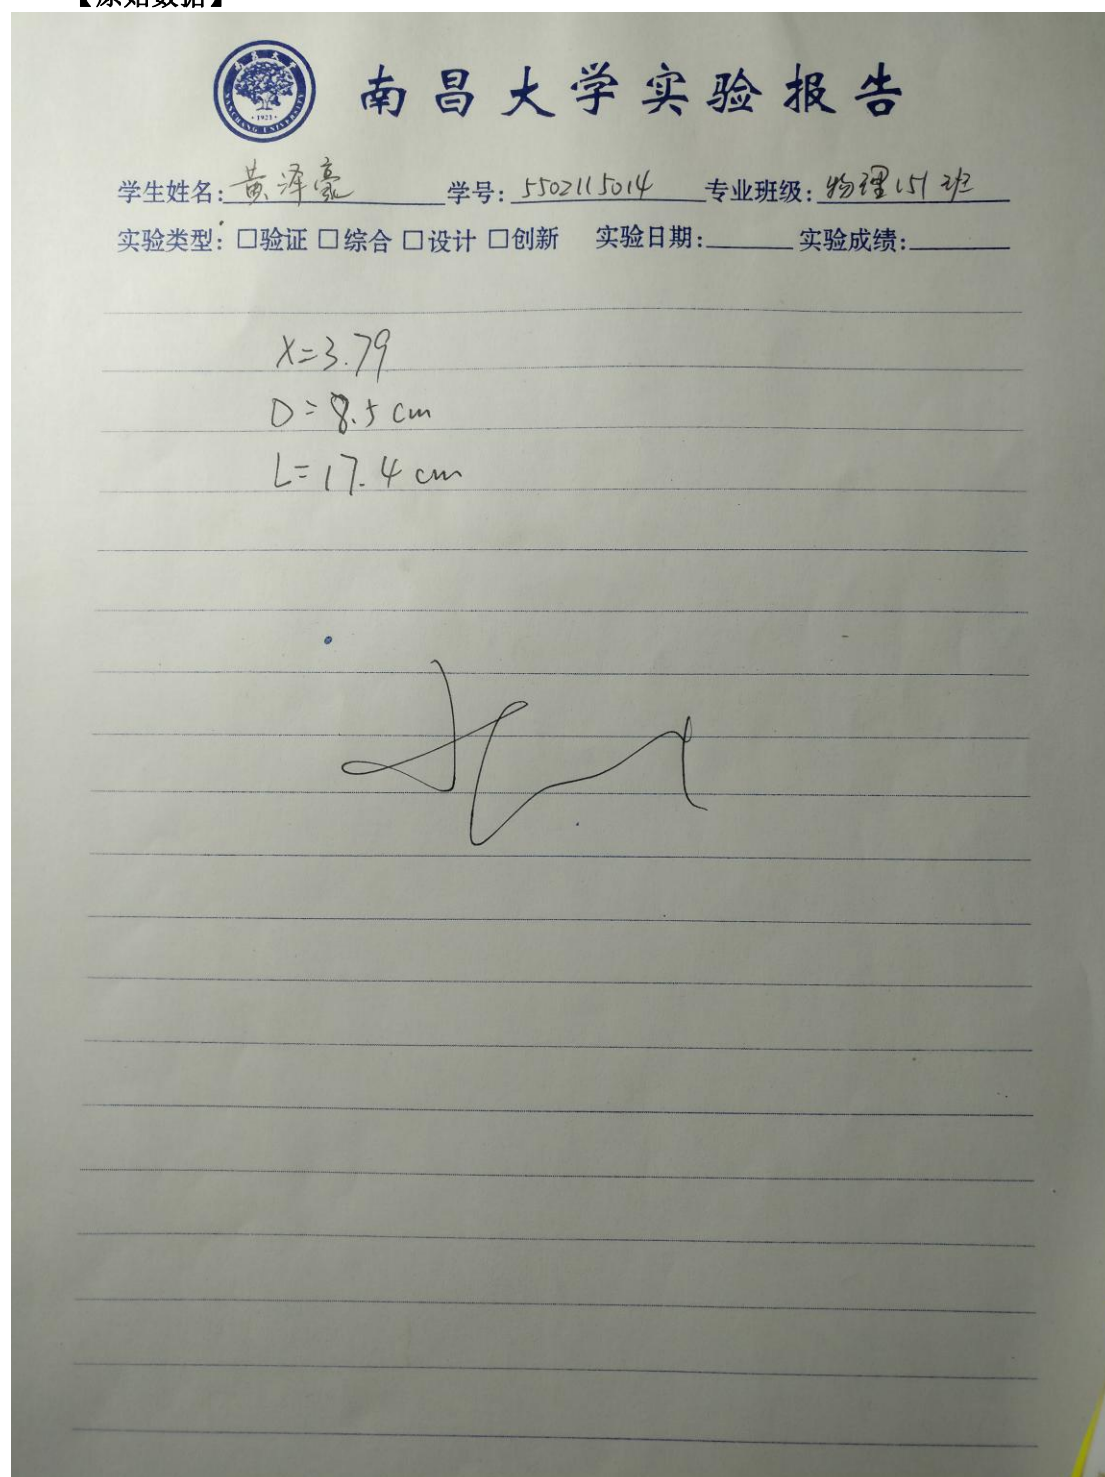 【原始数据】
南昌大学实验报告
学生姓名:黄泽豪 学号:5502115014 专业班级:物理151班
实验类型:□验证□综合□设计□创新 实验日期: 实验成绩:
X=3.79
D=8.5cm
L=17.4cm